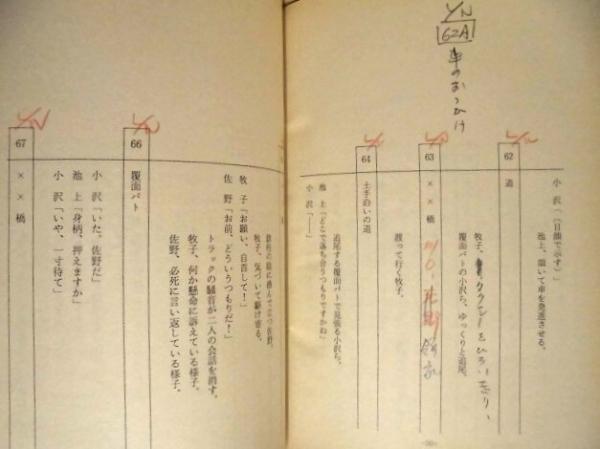 L/N
62A
車のおっかけ
小沢「(目顔で示す)」
池上、頷いて車を発進させる。
L/N
62
道
牧子、タクシーをひろい走り、
覆面パトの小沢ら、ゆっくりと追尾。
63
××橋
渡って行く牧子。
64
土手沿いの道
追尾する覆面パトで見張る小沢ら。
池上「どこで落ち合うつもりですかね」
小沢「――」
牧子、気づいて駆け寄る。
牧子「お願い、自首して!」
佐野「お前、どういうつもりだ!」
トラックの騒音が二人の会話を消す。
牧子、何か懸命に訴えている様子。
佐野、必死に言い返している様子。
L/N
66
覆面パト
小沢「いた。佐野だ」
池上「身柄、押えますか」
小沢「いや、一寸待て」
L/N
67
××橋